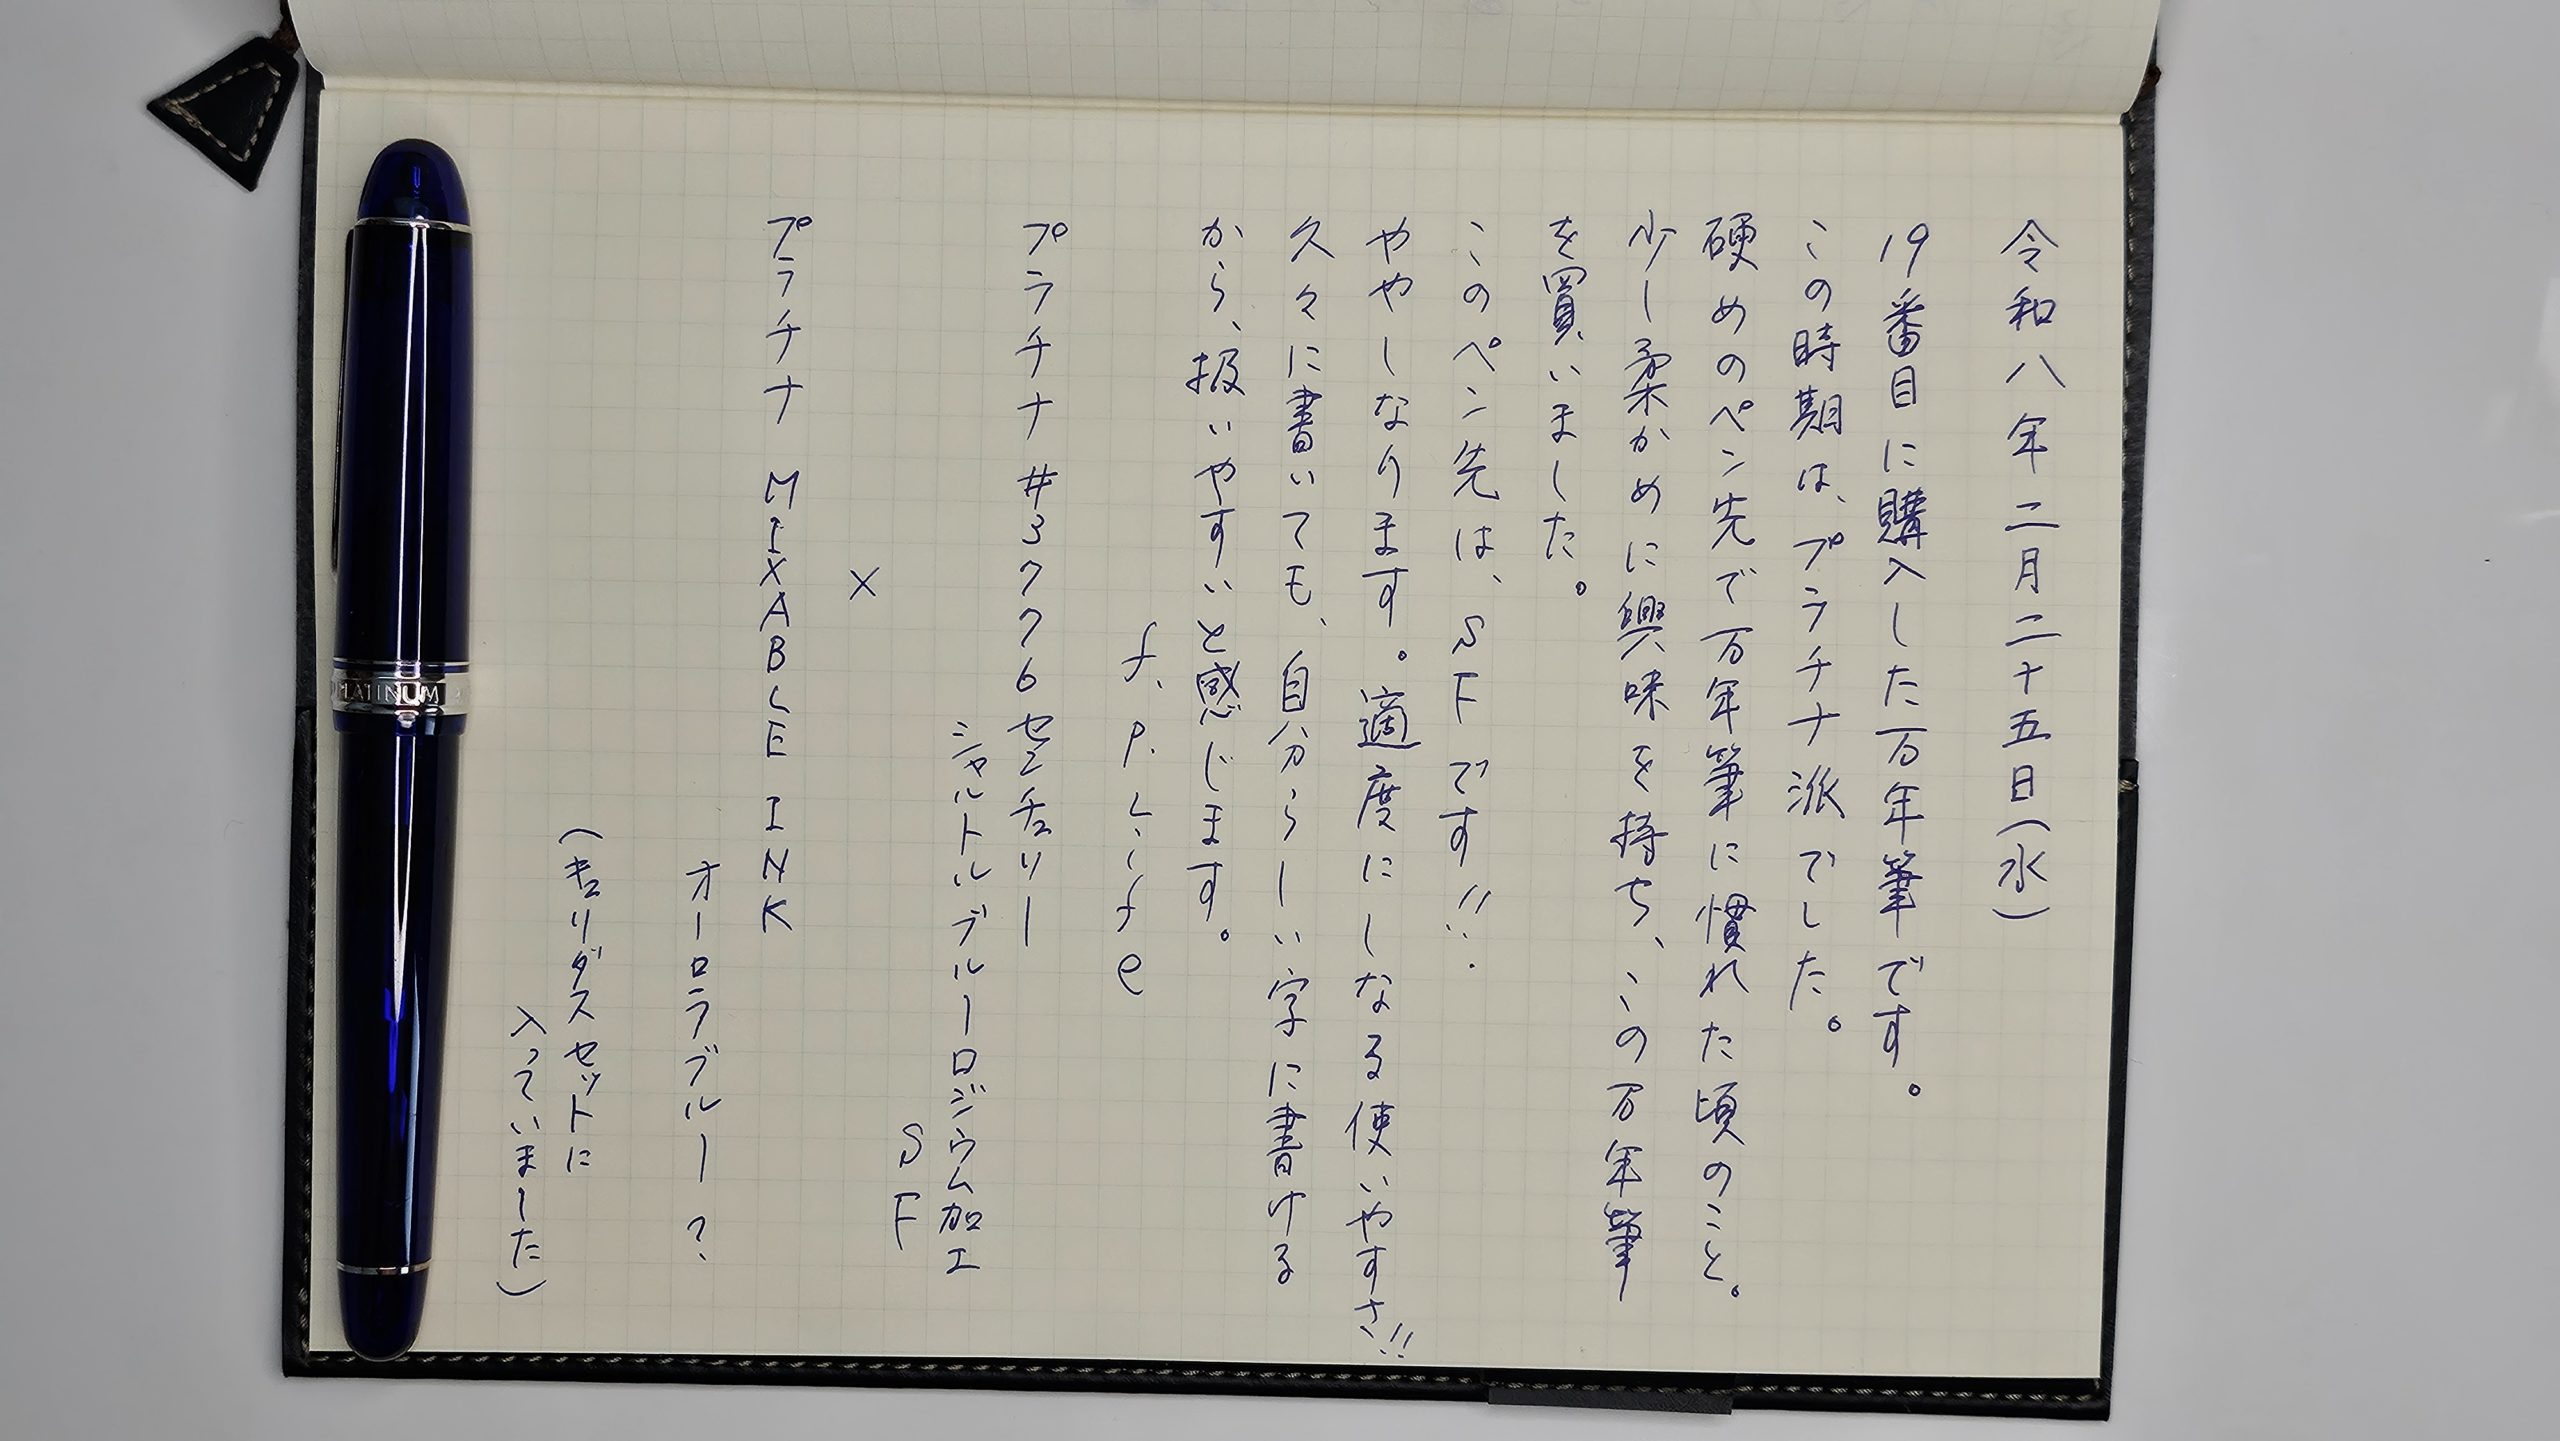 令和八年二月二十五日(水)
19番目に購入した万年筆です。
この時期は、プラチナ派でした。
硬めのペン先で万年筆に慣れた頃のこと。
少し柔かめに興味を持ち、この万年筆
を買いました。
このペン先は、SFです!!.
ややしなります。適度にしなる使いやすさ!!
久々に書いても、自分らしい字に書ける
から、扱いやすいと感じます。
f.P.Life
プラチナ #3776センチュリー
シャルトルブルーロジウム加工
SF
×
プラチナ MIXABLE INK
オーロラブルー?
(キュリダスセットに
入っていました)
PLATINUM